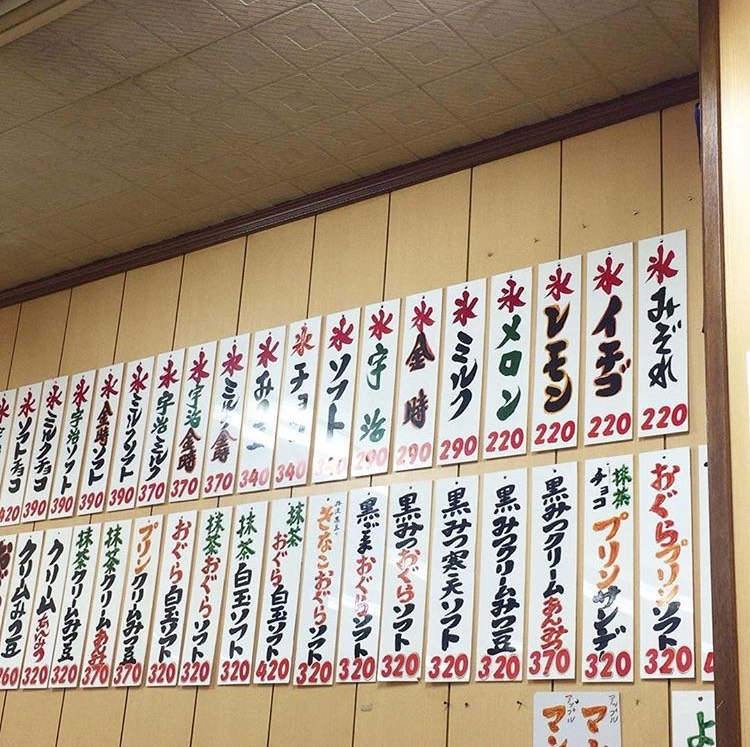 氷みぞれ 220
氷イチゴ 220
氷レモン 220
氷メロン 220
氷ミルク 290
氷金時 290
氷宇治 290
氷ソフト 340
氷チョコ 340
氷みつ豆 340
氷ミルク金時 370
氷宇治金時 370
氷宇治ミルク 370
氷ミルクソフト 390
氷金時ソフト 390
氷宇治ソフト 390
氷ミルクチョコ 390
氷ソフトチョコ 420
おぐらプリンソフト 320
抹茶チョコプリンサンデー 320
黒みつクリームあんみつ 370
黒みつクリームみつ豆 320
黒みつ寒天ソフト 320
黒みつおぐらソフト 320
黒ごまおぐらソフト 320
きなこおぐらソフト 320
抹茶おぐら白玉ソフト 420
抹茶白玉ソフト 320
抹茶おぐらソフト 320
おぐら白玉ソフト 320
プリンクリームみつ豆 370
抹茶クリームあんみつ 370
抹茶クリームみつ豆 320
クリームあんみつ 320
クリームみつ豆 260
アップル
マン
アップル
マン
よ